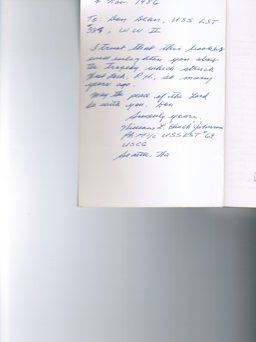 Nov. 1986
To: Dan Dean, USS LST
W.W. II
I trust that this booklet
will enlighten you along
the tragedy which struck
West Loch, P.H. so many
years ago.
May the peace of the Lord
be with you, Dan
Sincerely yours,
Johnson
PhM 1/c USS LST 69
USCG
Seattle, Wa